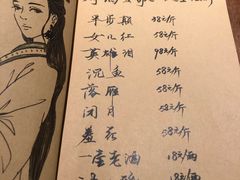 半步颠 38元/斤
女儿红 58元/斤
英雄泪 98元/斤
沉鱼 58元/斤
落雁 58元/斤
闭月 58元/斤
羞花 58元/斤
一壶老酒 18元/两
18元/两